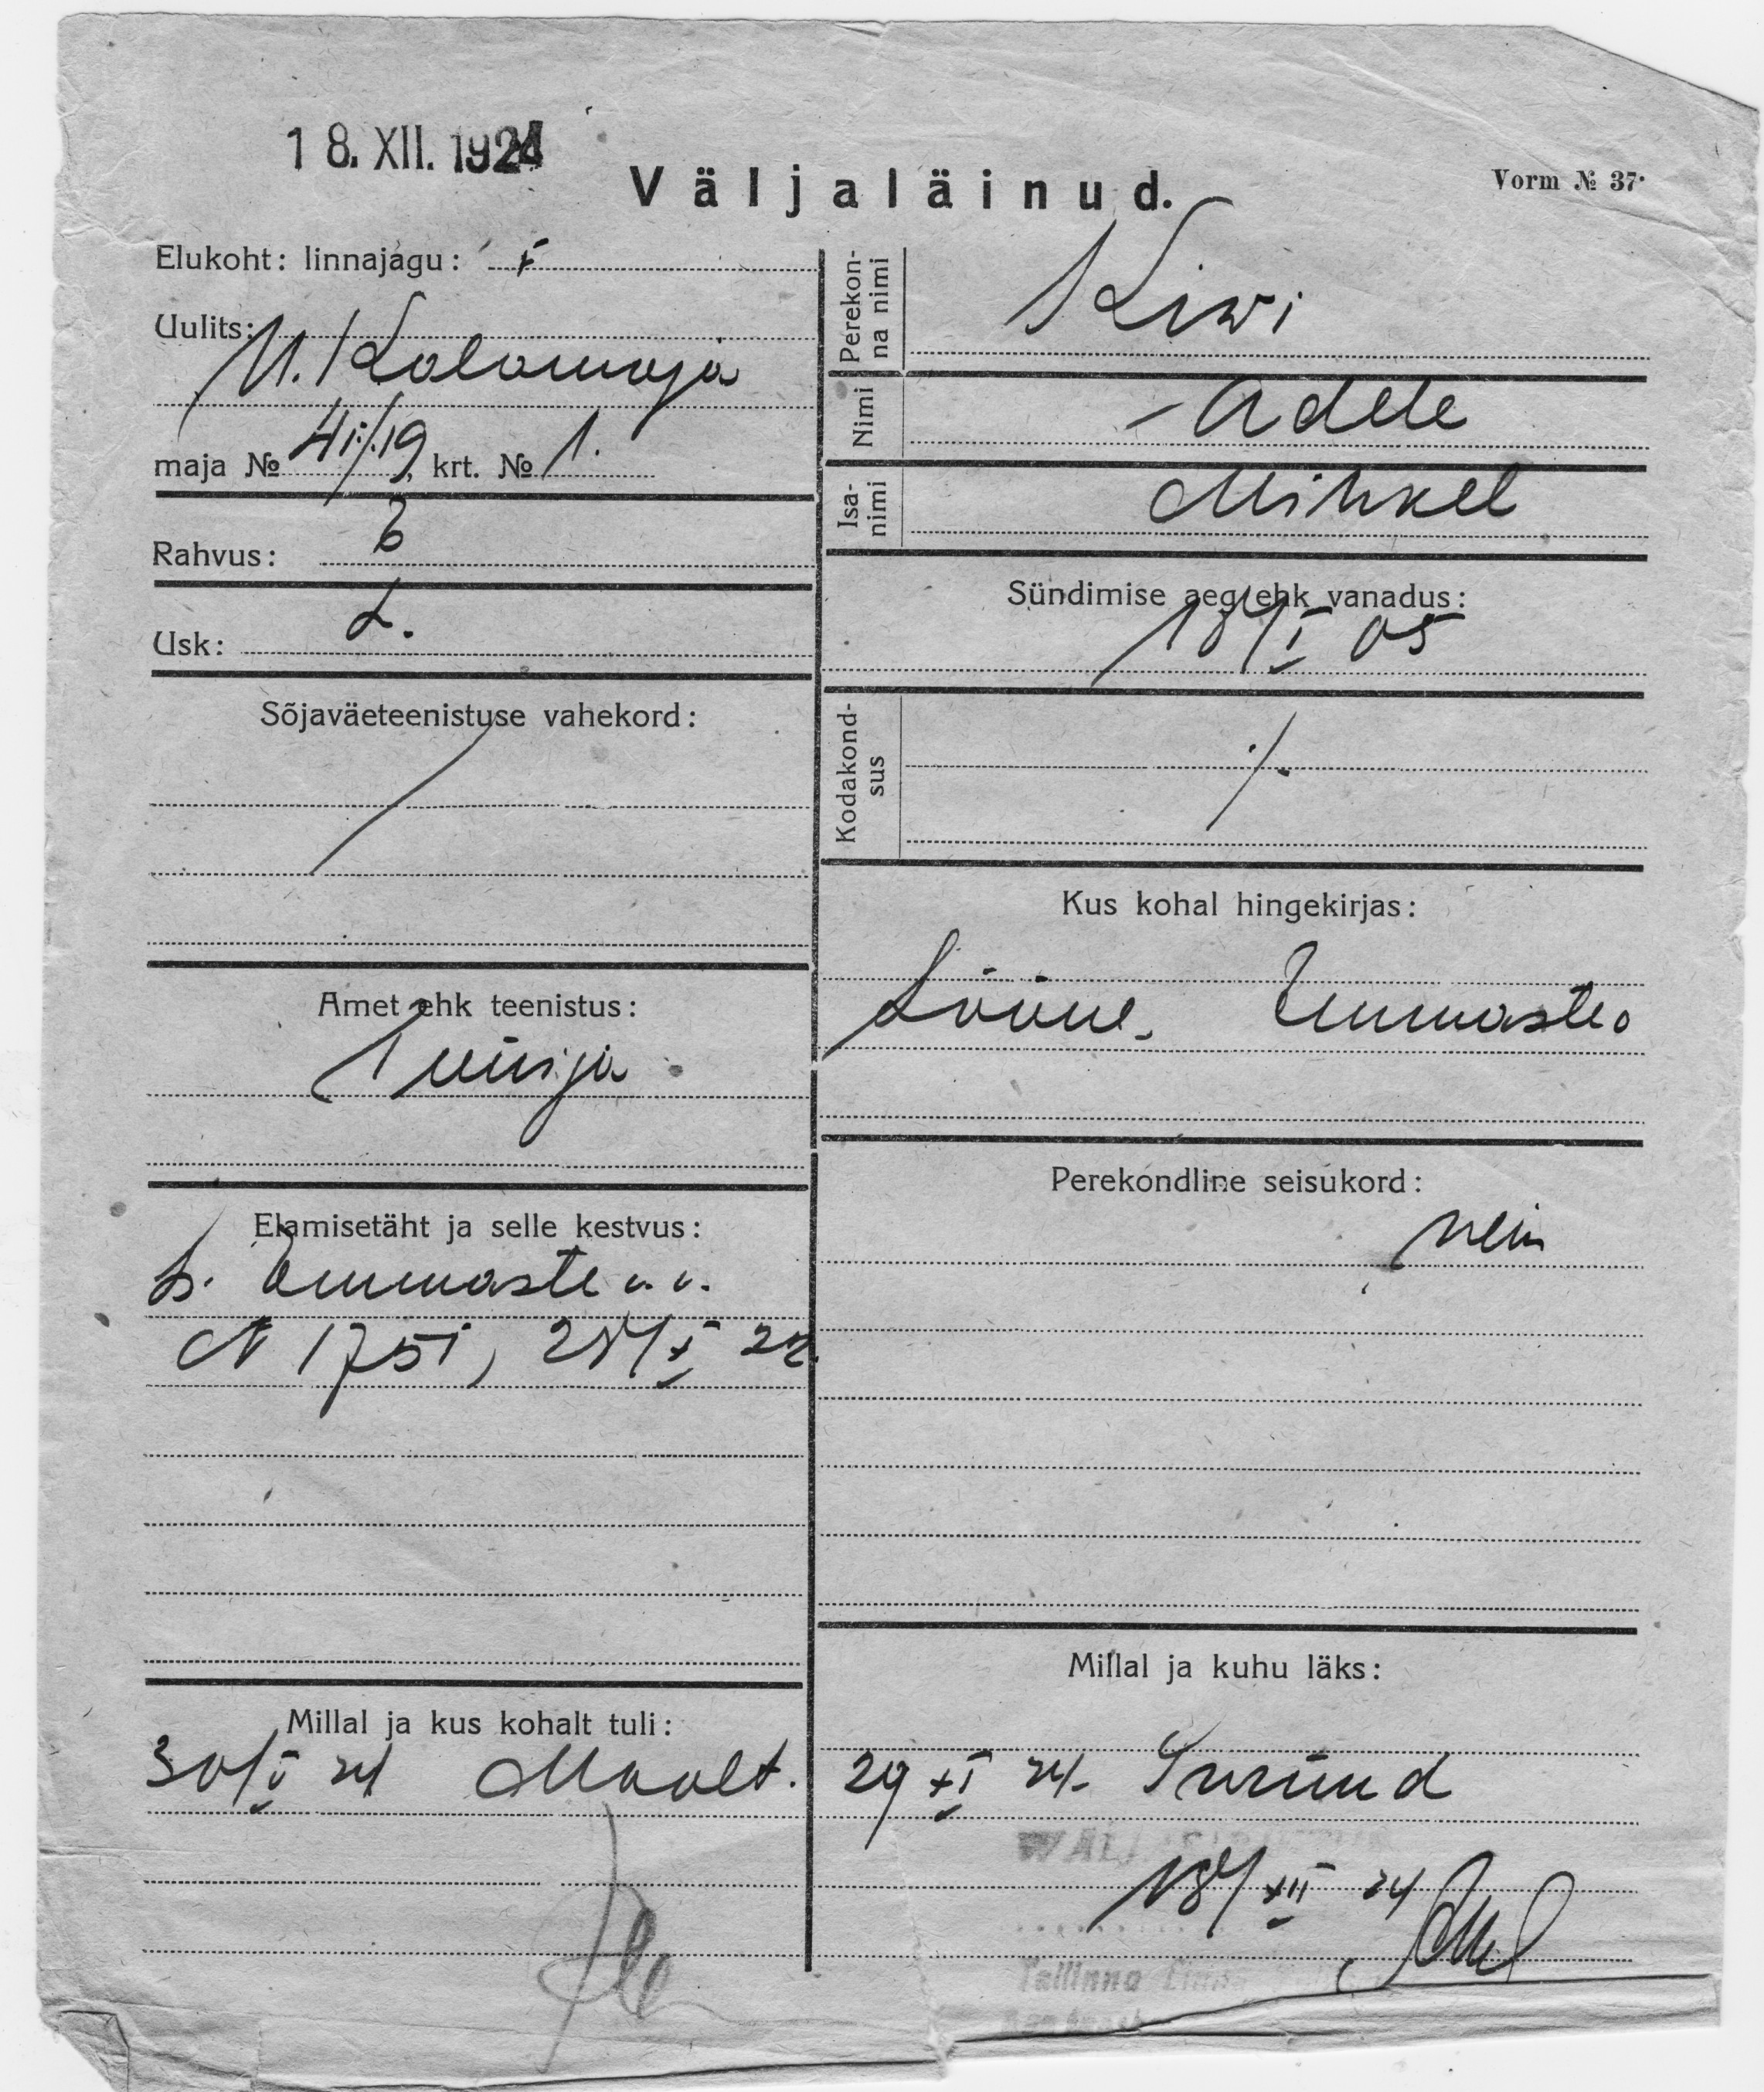 18. XII. 1924
Väljaläinud.
Vorm № 37.
Elukoht: linnajagu:
Uulits:
U. Kalamaja
maja № 41/19 krt. № 1.
Rahvus: E
Usk: L.
Sõjaväeteenistuse vahekord: /
Amet ehk teenistus:
Teenija
Elamisetäht ja selle kestvus:
Emmaste v. v.
N 1751, 28/X 22.
Millal ja kus kohalt tuli:
30/V 24 Maalt.
Perekonna nimi
Kiwi
Nimi
Adele
Isanimi
Mihkel
Sündimise aeg ehk vanadus:
18/I 05
Kodakondsus
./.
Kus kohal hingekirjas:
Lääne, Emmaste
Perekondline seisukord:
Millal ja kuhu läks:
29 XI 24
18/XII 24
Tallinna